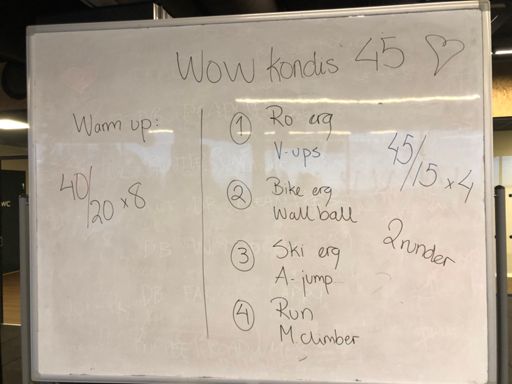 Wow kondis 45 ♡
Warm up:
40/20 x 8
① Ro erg
V-ups
② Bike erg
Wall ball
③ Ski erg
A-jump
④ Run
M.climber
45/15 x 4
2 runder
WC